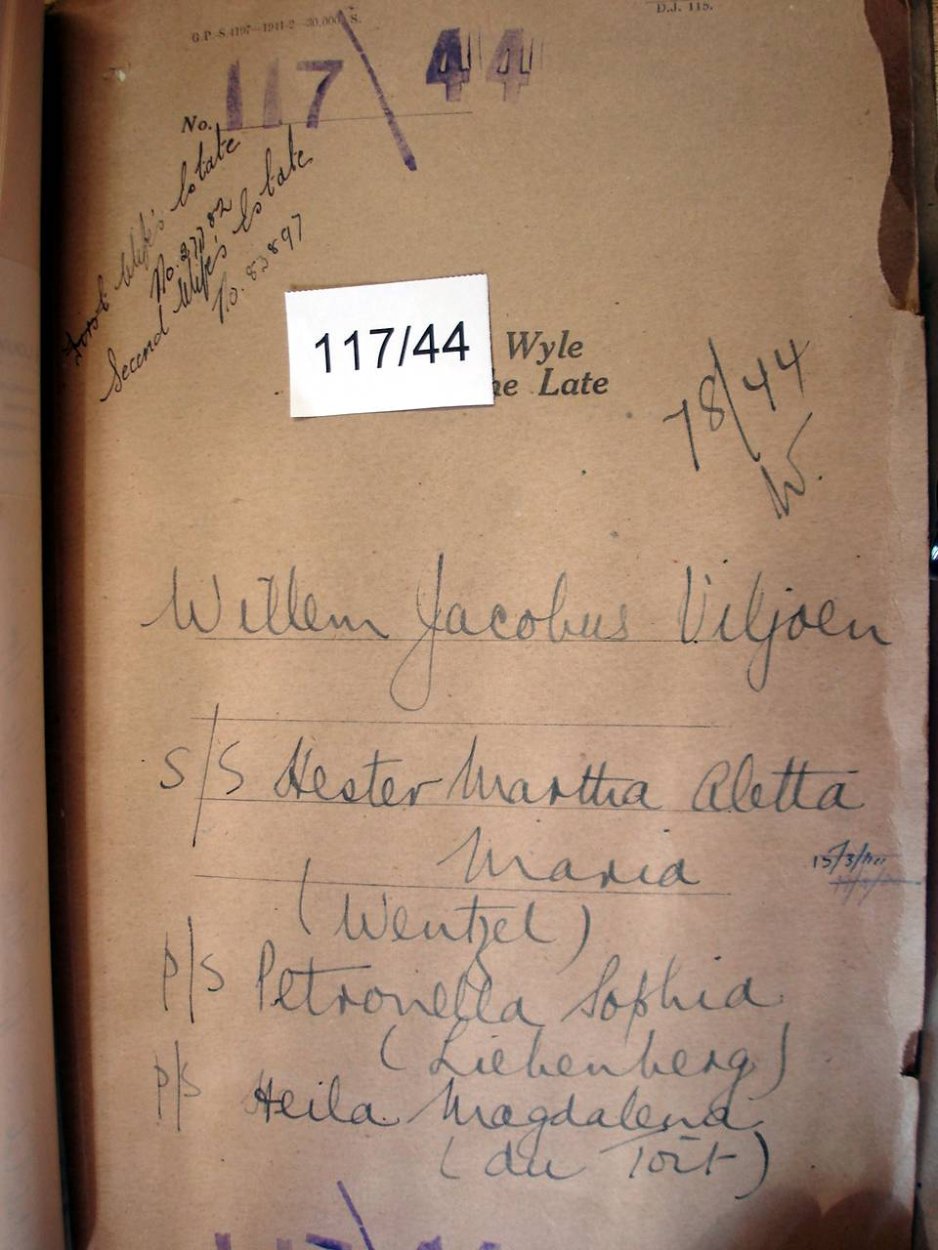 G.P.-S.4197—1941-2—20,000. S.
D.J. 115.
No. 117/44
First Wife's Estate
No. 37782
Second Wife's Estate
No. 83897
117/44
Wyle
he Late
78/44
W.
Willem Jacobus Viljoen
S/S Hester Martha Aletta
Maria
15/3/
(Wentzel)
P/S Petronella Sophia
(Liebenberg)
P/S Heila Magdalena
(du Toit)
117 44